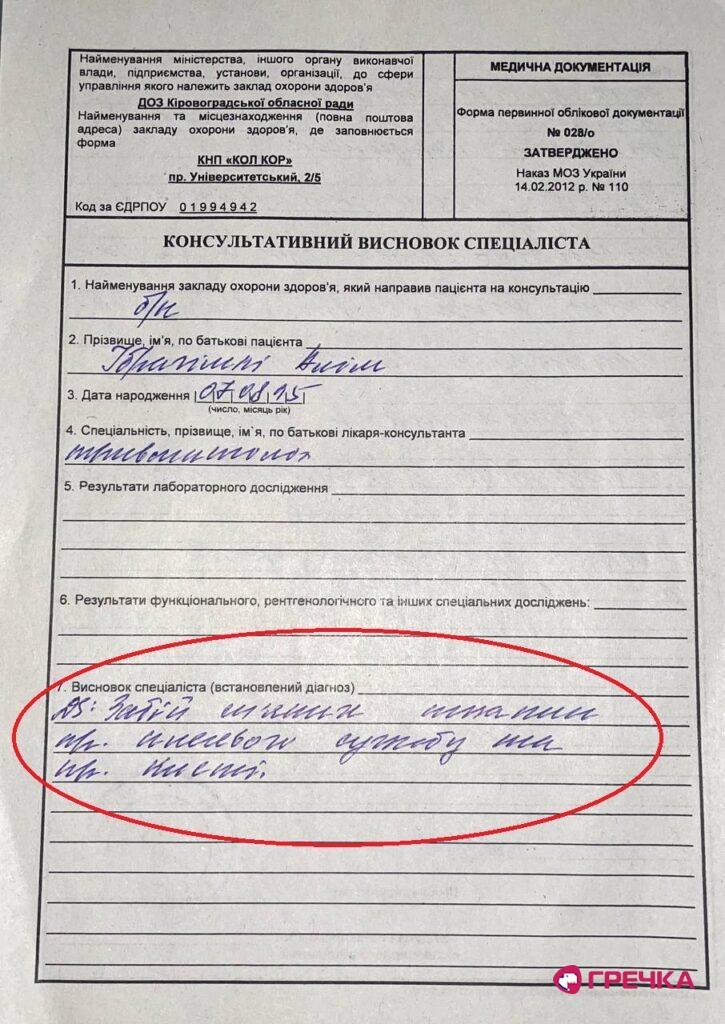 Найменування міністерства, іншого органу виконавчої
влади, підприємства, установи, організації, до сфери
управління якого належить заклад охорони здоров'я
ДОЗ Кіровоградської обласної ради
Найменування та місцезнаходження (повна поштова
адреса) закладу охорони здоров'я, де заповнюється
форма
КНП «КОЛ КОР»
пр. Університетський, 2/5
Код за ЄДРПОУ 01994942
МЕДИЧНА ДОКУМЕНТАЦІЯ
Форма первинної облікової документації
№ 028/о
ЗАТВЕРДЖЕНО
Наказ МОЗ України
14.02.2012 р. № 110
КОНСУЛЬТАТИВНИЙ ВИСНОВОК СПЕЦІАЛІСТА
1. Найменування закладу охорони здоров'я, який направив пацієнта на консультацію
б/н
2. Прізвище, ім'я, по батькові пацієнта
Алім
3. Дата народження 07 08 95
(число, місяць рік)
4. Спеціальність, прізвище, ім`я, по батькові лікаря-консультанта
5. Результати лабораторного дослідження
6. Результати функціонального, рентгенологічного та інших спеціальних досліджень:
7. Висновок спеціаліста (встановлений діагноз)
DS: Забій м'яких тканин
пр. плечового суглобу та
пр. кисті.
ГРЕЧКА